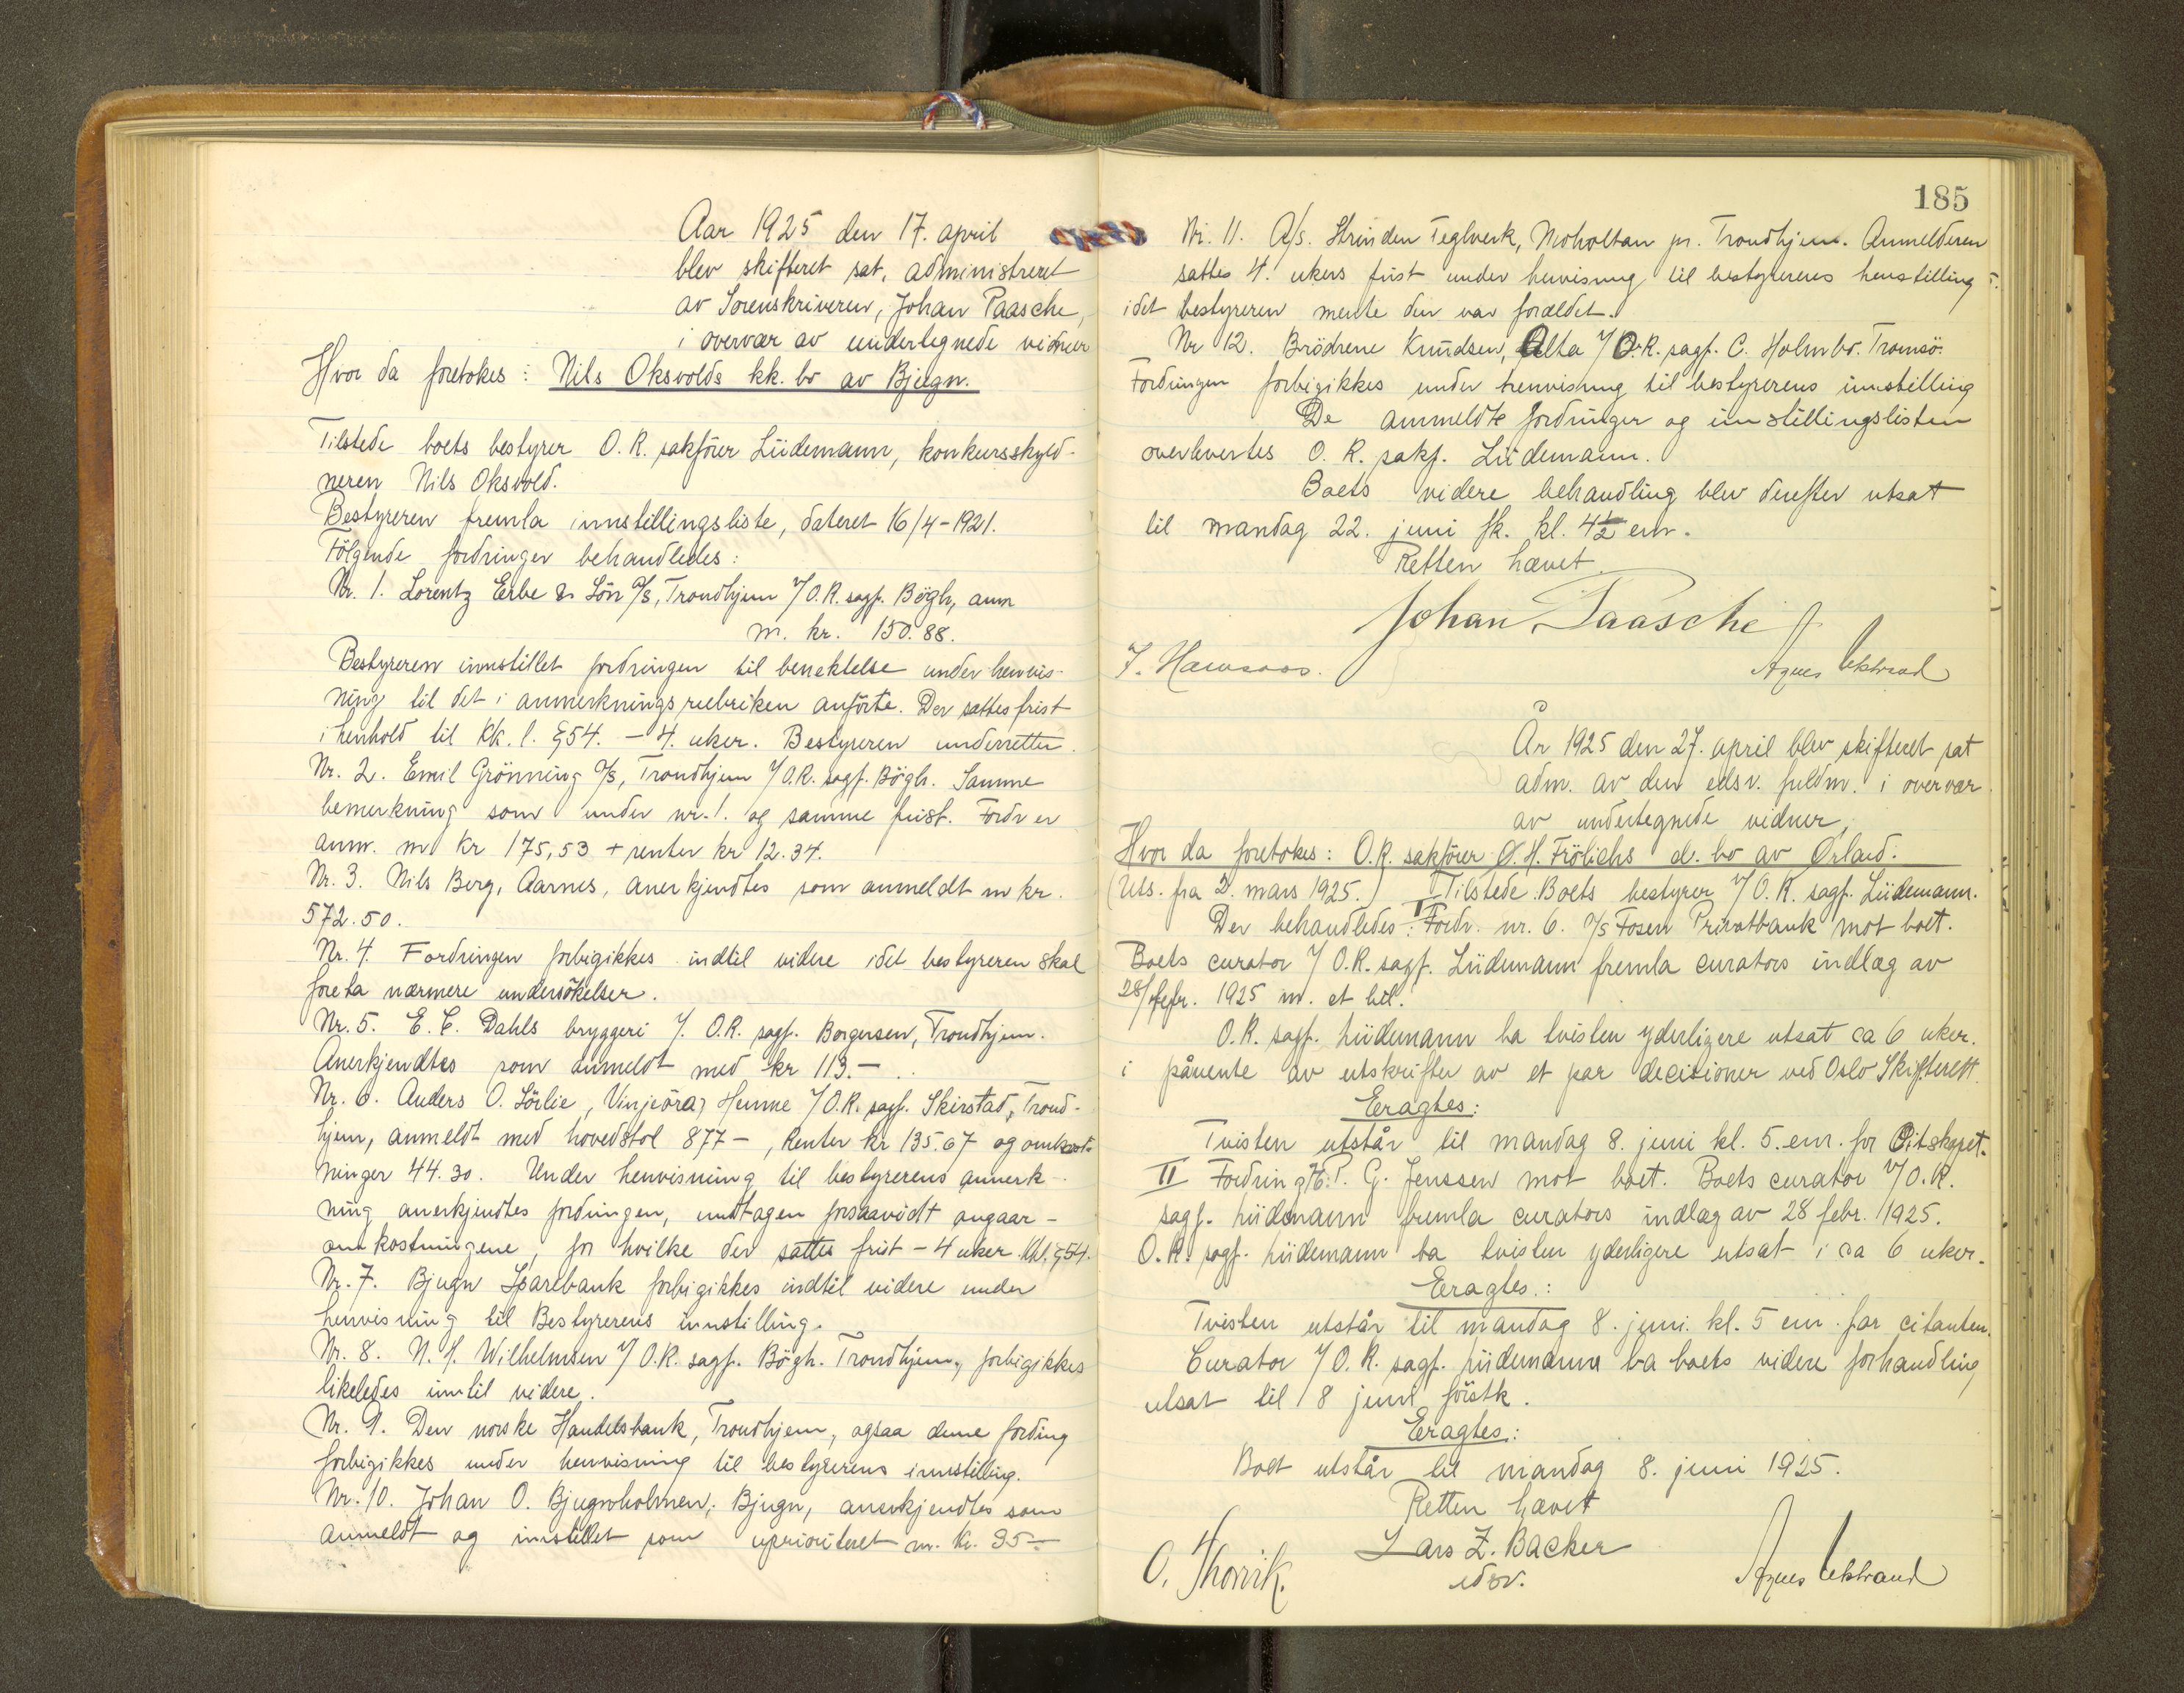 Aar 1925 den 17. april
blev skifteret sat, administreret
av Sorenskriveren, Johan Paasche,
i overvær av undertegnede vidner
Hvor da foretokes: Nils Oksvolds kk. bo av Bjugn.
Tilstede boets bestyrer O. R. sakförer Lüdemann, konkursskyld-
neren Nils Oksvold.
Bestyreren fremla innstillingsliste, dateret 16/4-1921.
Fölgende fordringer behandledes:
Nr. 1. Lorentz Erbe & Sön A/S, Trondhjem v/ O.R. sagf. Bögh, anm
m. kr. 150.88.
Bestyreren innstillet fordringen til benektelse under henvis-
ning til det i anmerkningsrubriken anförte. Der sattes frist
i henhold til kk. l. §54. - 4. uker. Bestyreren underretter.
Nr. 2. Emil Grönning A/S, Trondhjem v/ O.R. sagf. Bögh. Samme
bemerkning som under nr. 1. og samme frist. Fordr er
anm. m kr 175,53 + renter kr 12.34.
Nr. 3. Nils Berg, Aarnes, anerkjendtes som anmeldt m kr.
572.50.
Nr. 4. Fordringen forbigikkes indtil videre idet bestyreren skal
foreta nærmere undersökelser.
Nr. 5. E. C. Dahls bryggeri v/ O.R. sagf. Borgersen, Trondhjem.
Anerkjendtes som anmeldt med kr 113.-
Nr. 6. Anders O. Sörlie, Vinjeöra, Hemne v/ O.R. sagf. Skirstad, Trond-
hjem, anmeldt med hovedstol 877-, Renter kr 135.67 og omkost-
ninger 44.30. Under henvisning til bestyrerens anmerk-
ning anerkjendtes fordringen, undtagen forsaavidt angaar-
omkostningene, for hvilke der sattes frist - 4 uker. kkl. §54.
Nr. 7. Bjugn Sparebank forbigikkes indtil videre under
henvisning til Bestyrerens innstilling.
Nr. 8. N. J. Wilhelmsen v/ O.R. sagf. Bögh. Trondhjem, forbigikkes
likeledes inntil videre.
Nr. 9. Den norske Handelsbank, Trondhjem, ogsaa denne fording
forbigikkes under henvisning til bestyrerens innstilling.
Nr. 10. Johan O. Bjugnholmen, Bjugn, anerkjendtes som
anmeldt og innstillet som uprioriteret m. kr. 35-
185
Nr. 11. A/S. Strinden Teglverk, Moholtan pr. Trondhjem. Anmelderen
sattes 4. ukers frist under henvisning til bestyrerens henstilling
idet bestyreren mente den var forældet.
Nr 12. Brödrene Knudsen, Alta v/ O.R. sagf. C. Holmbo. Tromsö.
Fordringen forbigikkes under henvisning til bestyrerens innstilling
De anmeldte fordringer og innstillingslisten
overlevertes O. R. sakf. Lüdemann.
Boets videre behandling blev derefter utsat
til mandag 22. juni fk. kl. 4½ em.
Retten hævet.
Johan Paasche
Agnes Ukstrand
År 1925 den 27. april blev skifteret sat
adm. av den edsv. fuldm. i overvær
av undertegnede vidner,
Hvor da foretokes: O.R. sakförer O. H. Frölichs d. bo av Ørland.
(Uts. fra 2. mars 1925.) Tilstede Boets bestyrer v/ O.R. sagf. Lüdemann.
Der behandledes: I Fordr. nr. 6. A/S Fosen Privatbank mot boet.
Boets curator v/ O.R. sagf. Lüdemann fremla curators indlæg av
28/febr. 1925 m. et bil.
O.R. sagf. Lüdemann ba tvisten yderligere utsat ca 6 uker.
i påvente av utskrifter av et par decisioner ved Oslo Skifterett.
Eragtes:
Tvisten utstår til mandag 8. juni kl. 5. em. for Citskapet.
II Fordring H. P. G. Jenssen mot boet. Boets curator v/ O.R.
sagf. Lüdemann fremla curators indlæg av 28 febr. 1925.
O.R. sagf. Lüdemann ba tvisten yderligere utsat i ca 6 uker.
Eragtes:
Tvisten utstår til mandag 8. juni. kl. 5 em. for citanten.
Curator v/ O.R. sagf. Lüdemann ba boets videre forhandling
utsat til 8 juni förstk.
Eragtes:
Boet utstår til mandag 8. juni 1925.
Retten hævet
Lars Z. Backer
edsv.
O. Thorvik.
Agnes Ukstrand